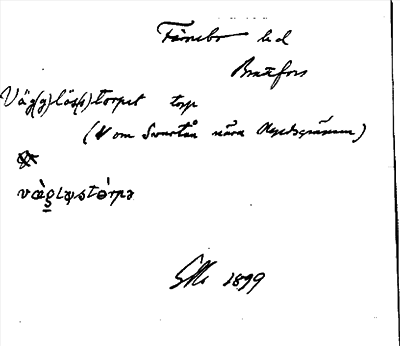 Färnebo hd
Brattfors
Väg(g)lös(s)torpet torp
(V om Svartån nära Älgedsgränsen)
væ̀g̲løstórpə
1899